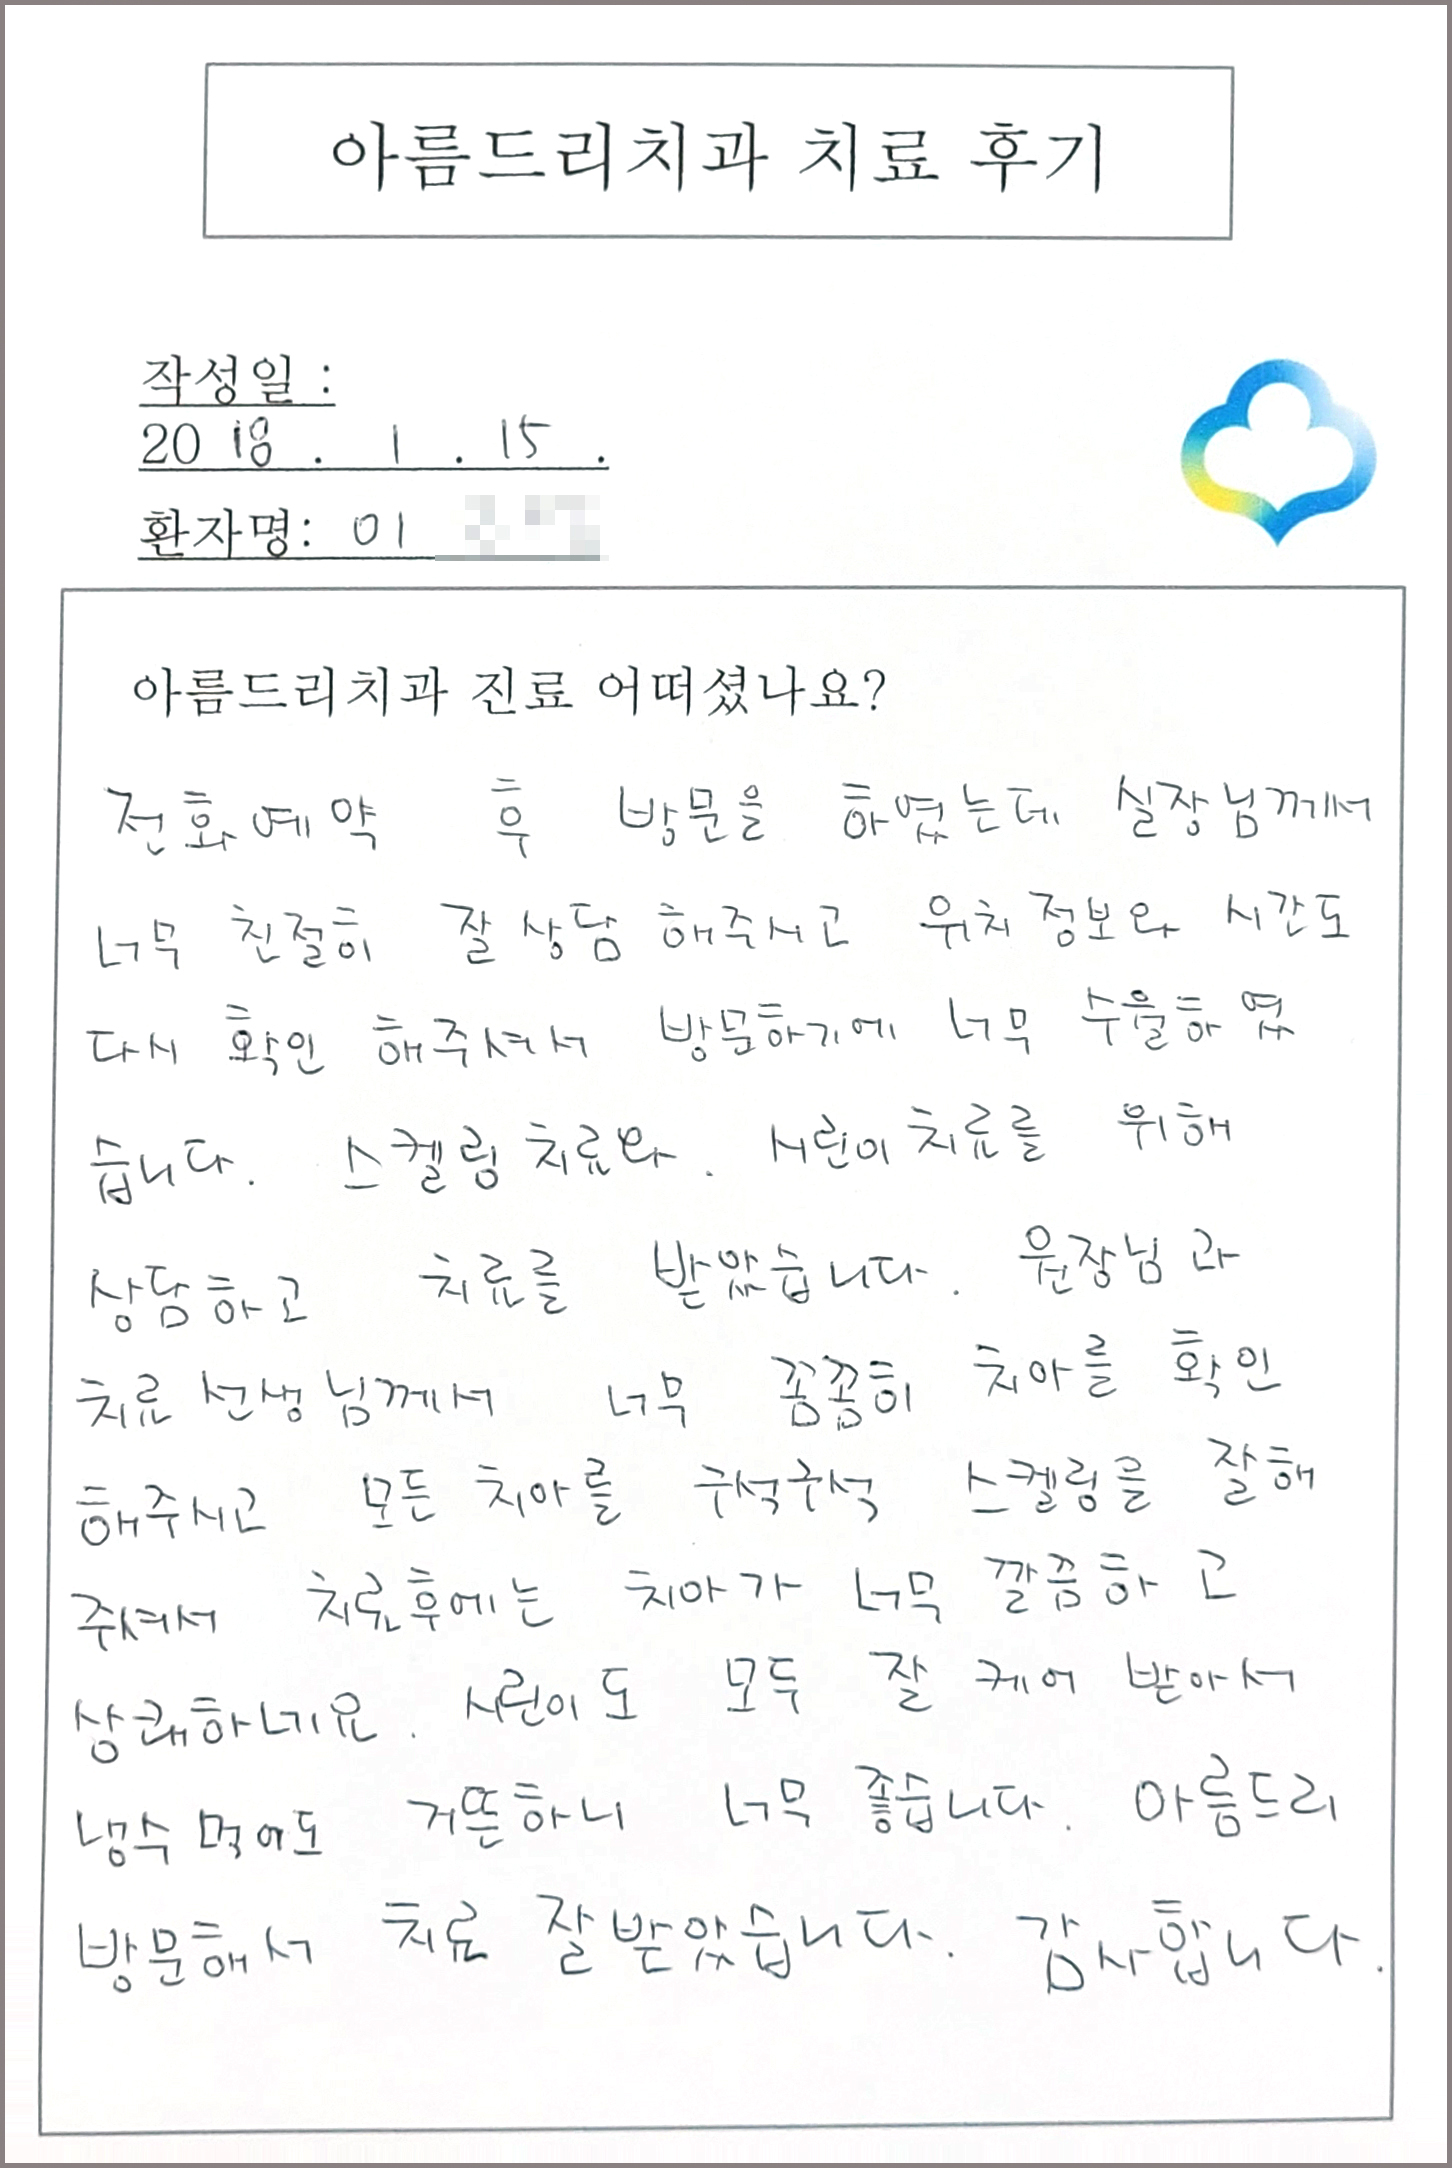 아름드리치과 치료 후기
작성일 :
2018 . 1 . 15 .
환자명: 이
아름드리치과 진료 어떠셨나요?
전화예약 후 방문을 하였는데 실장님께서
너무 친절히 잘 상담 해주시고 위치정보와 시간도
다시 확인 해주셔서 방문하기에 너무 수월하였
습니다. 스켈링 치료와. 시린이 치료를 위해
상담하고 치료를 받았습니다. 원장님과
치료 선생님께서 너무 꼼꼼히 치아를 확인
해주시고 모든 치아를 구석구석 스켈링를 잘해
주셔서 치료후에는 치아가 너무 깔끔하고
상쾌하네요. 시린이도 모두 잘 케어 받아서
냉수 먹어도 거뜬하니 너무 좋습니다. 아름드리
방문해서 치료 잘 받았습니다. 감사합니다.